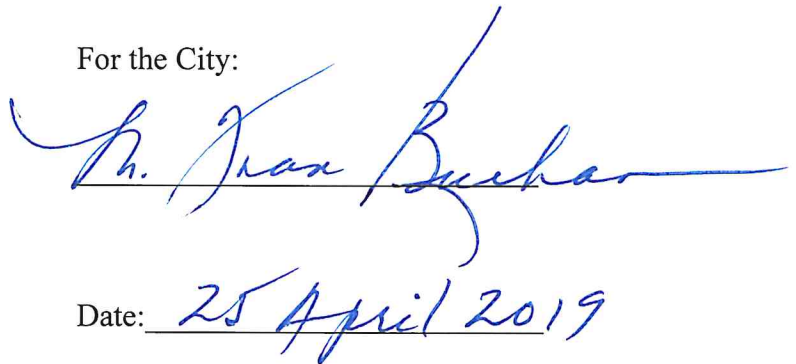 For the City:
M. Fran Buchan
Date: 25 April 2019